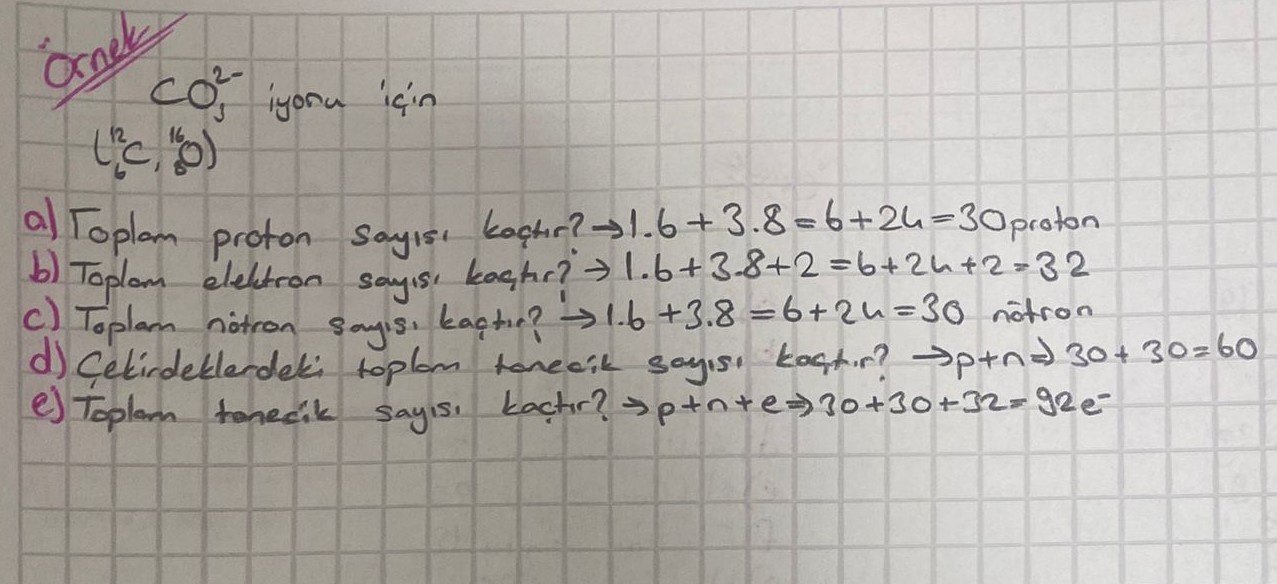 Örnek
CO₃²⁻ iyonu için
(¹²₆C, ¹⁶₈O)
a) Toplam proton sayısı kaçtır? → 1.6 + 3.8 = 6 + 24 = 30 proton
b) Toplam elektron sayısı kaçtır? → 1.6 + 3.8 + 2 = 6 + 24 + 2 = 32
c) Toplam nötron sayısı kaçtır? → 1.6 + 3.8 = 6 + 24 = 30 nötron
d) Çekirdeklerdeki toplam tanecik sayısı kaçtır? → p+n ⇒ 30 + 30 = 60
e) Toplam tanecik sayısı kaçtır? → p+n+e ⇒ 30 + 30 + 32 = 92e⁻